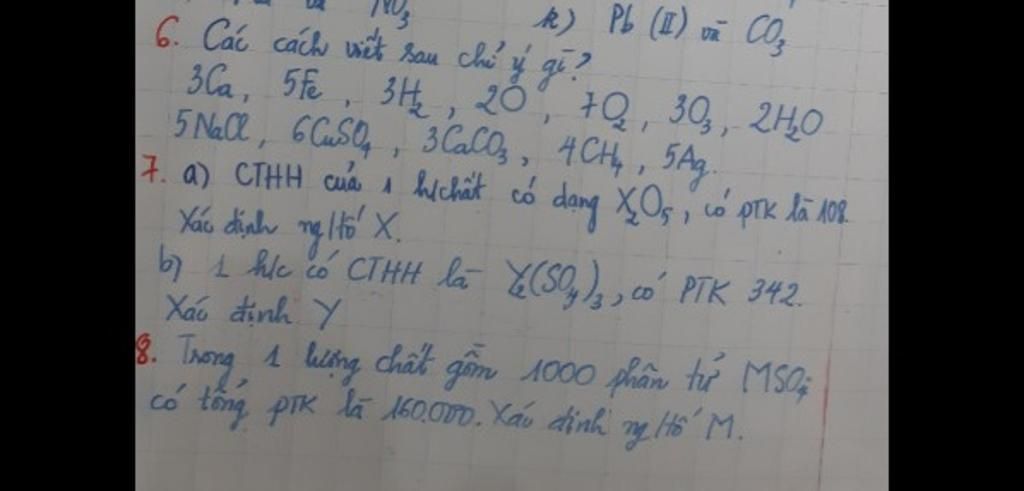 NO₃ k) Pb (II) và CO₃
6. Các cách viết sau chỉ ý gì?
3Ca, 5Fe, 3H₂, 2O, 7O₂, 3O₃, 2H₂O
5NaCl, 6CuSO₄, 3CaCO₃, 4CH₄, 5Ag.
7. a) CTHH của 1 h/chất có dạng X₂O₅, có PTK là 108.
Xác định ng/tố X.
b) 1 h/c có CTHH là Y₂(SO₄)₃, có PTK 342.
Xác định Y
8. Trong 1 lượng chất gồm 1000 phân tử MSO₄
có tổng PTK là 160.000. Xác định ng/tố M.